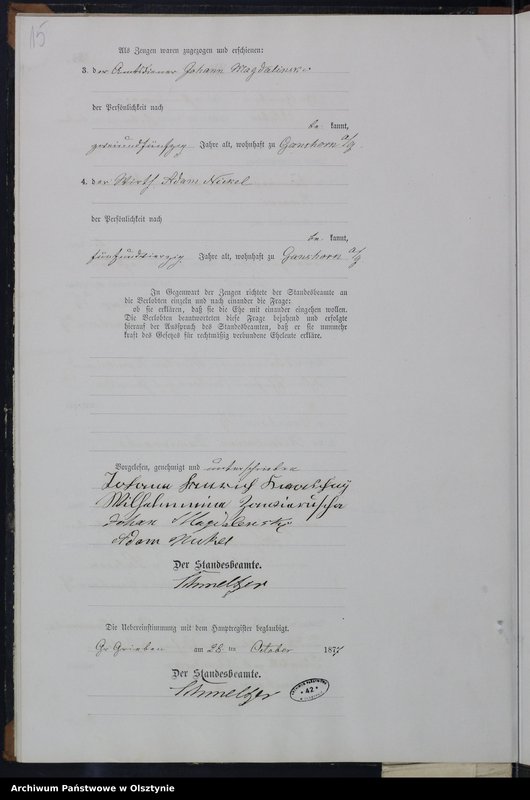 15
Als Zeugen waren zugezogen und erschienen:
3. der Amtsdiener Johann Magdalinski
der Persönlichkeit nach
be kannt,
zweiundfünfzig Jahre alt, wohnhaft zu Ganshorn a/G
4. der Wirth Adam Nickel
der Persönlichkeit nach
be kannt,
fünfundvierzig Jahre alt, wohnhaft zu Ganshorn a/G
In Gegenwart der Zeugen richtete der Standesbeamte an
die Verlobten einzeln und nach einander die Frage:
ob sie erklären, daß sie die Ehe mit einander eingehen wollen.
Die Verlobten beantworteten diese Frage bejahend und erfolgte
hierauf der Ausspruch des Standesbeamten, daß er sie nunmehr
kraft des Gesetzes für rechtmäßig verbundene Eheleute erkläre.
Vorgelesen, genehmigt und unterschrieben
Johann Heinrich
Wilhelmine
Johan Magdalenski
Adam Nickel
Der Standesbeamte.
Schmeltzer
Die Uebereinstimmung mit dem Hauptregister beglaubigt.
Gr Grieben am 28 ten October 1877
Der Standesbeamte.
Schmeltzer
42
Archiwum Państwowe w Olsztynie